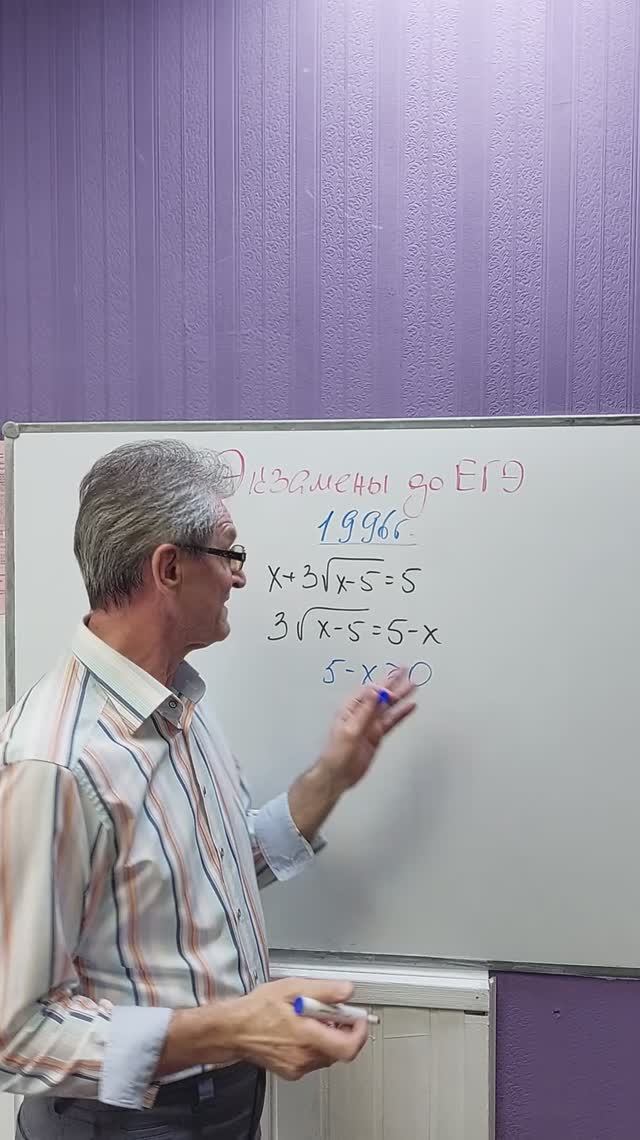 Экзамены до ЕГЭ
1996г.
x+3√x-5=5
3√x-5=5-x
5-x≥0